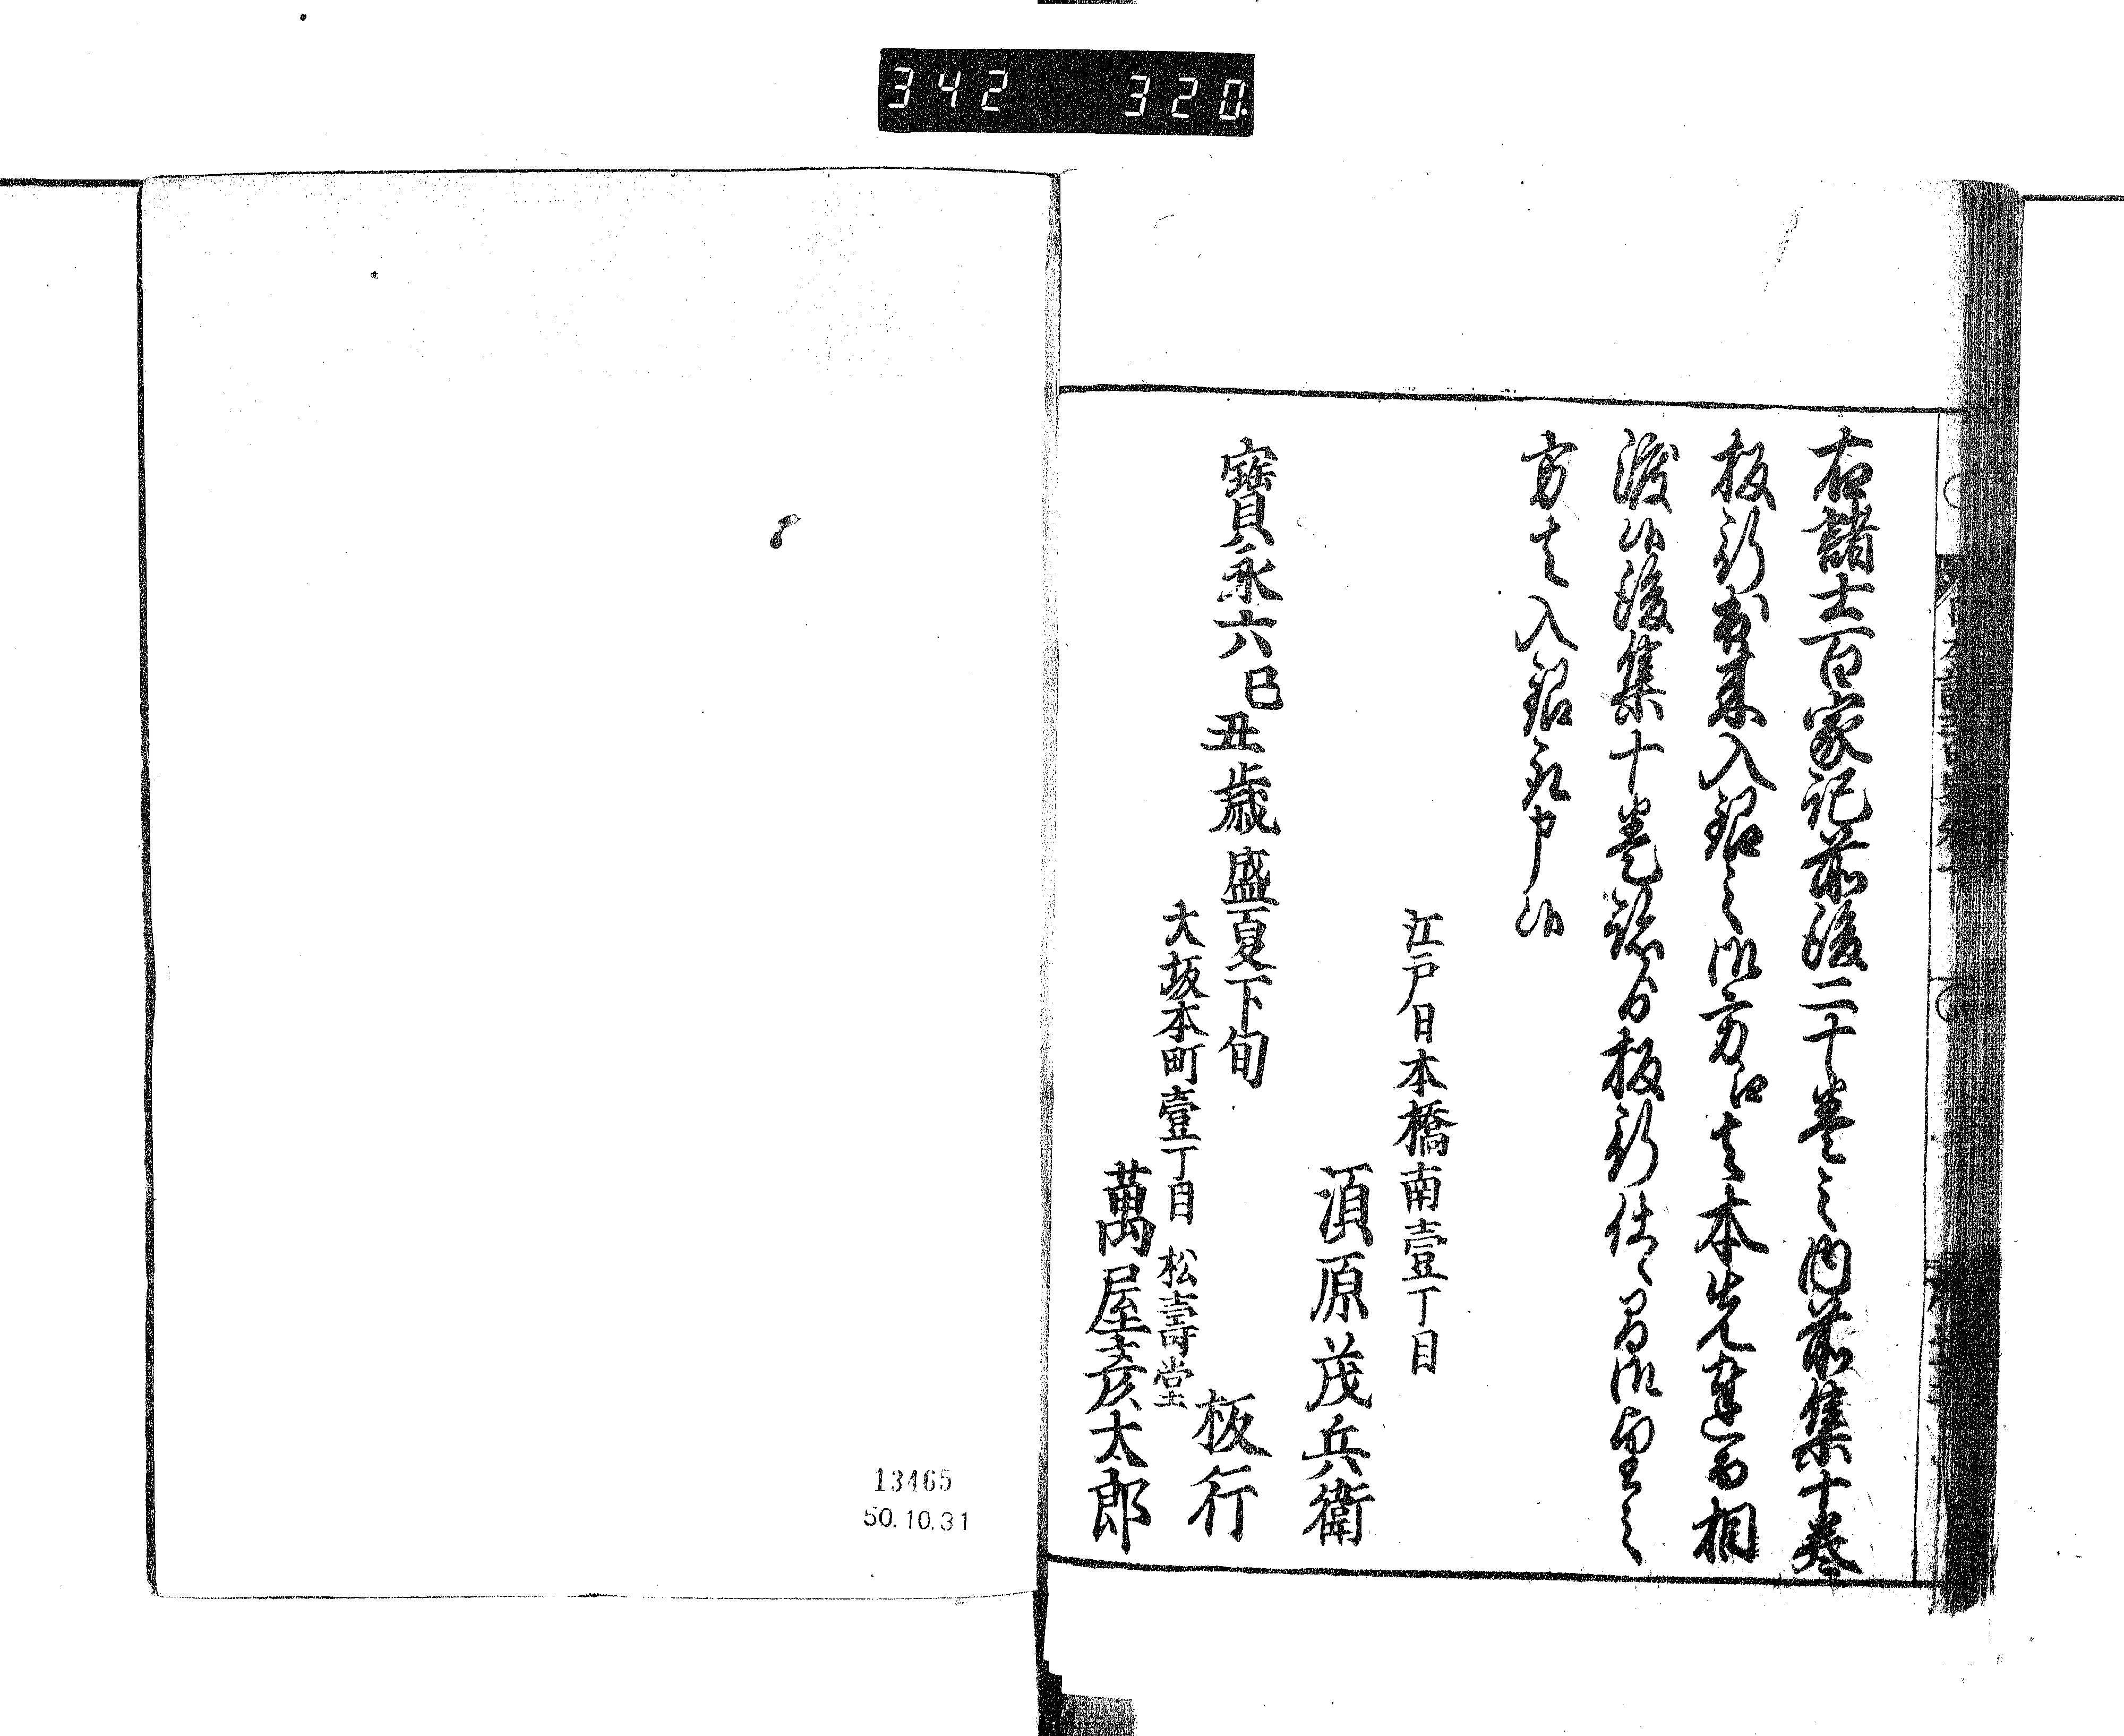 342 320.
右諸士百家記前後二十巻之内前集十巻
板行出来入銀之御方江者本先達而相
渡候後集十巻跡ゟ板行仕候間御望之
方者入銀可被下候
江戸日本橋南壹丁目
須原茂兵衛
寶永六己丑歳盛夏下旬
板行
大坂本町壹丁目 松壽堂
萬屋彦太郎
13465
50.10.31